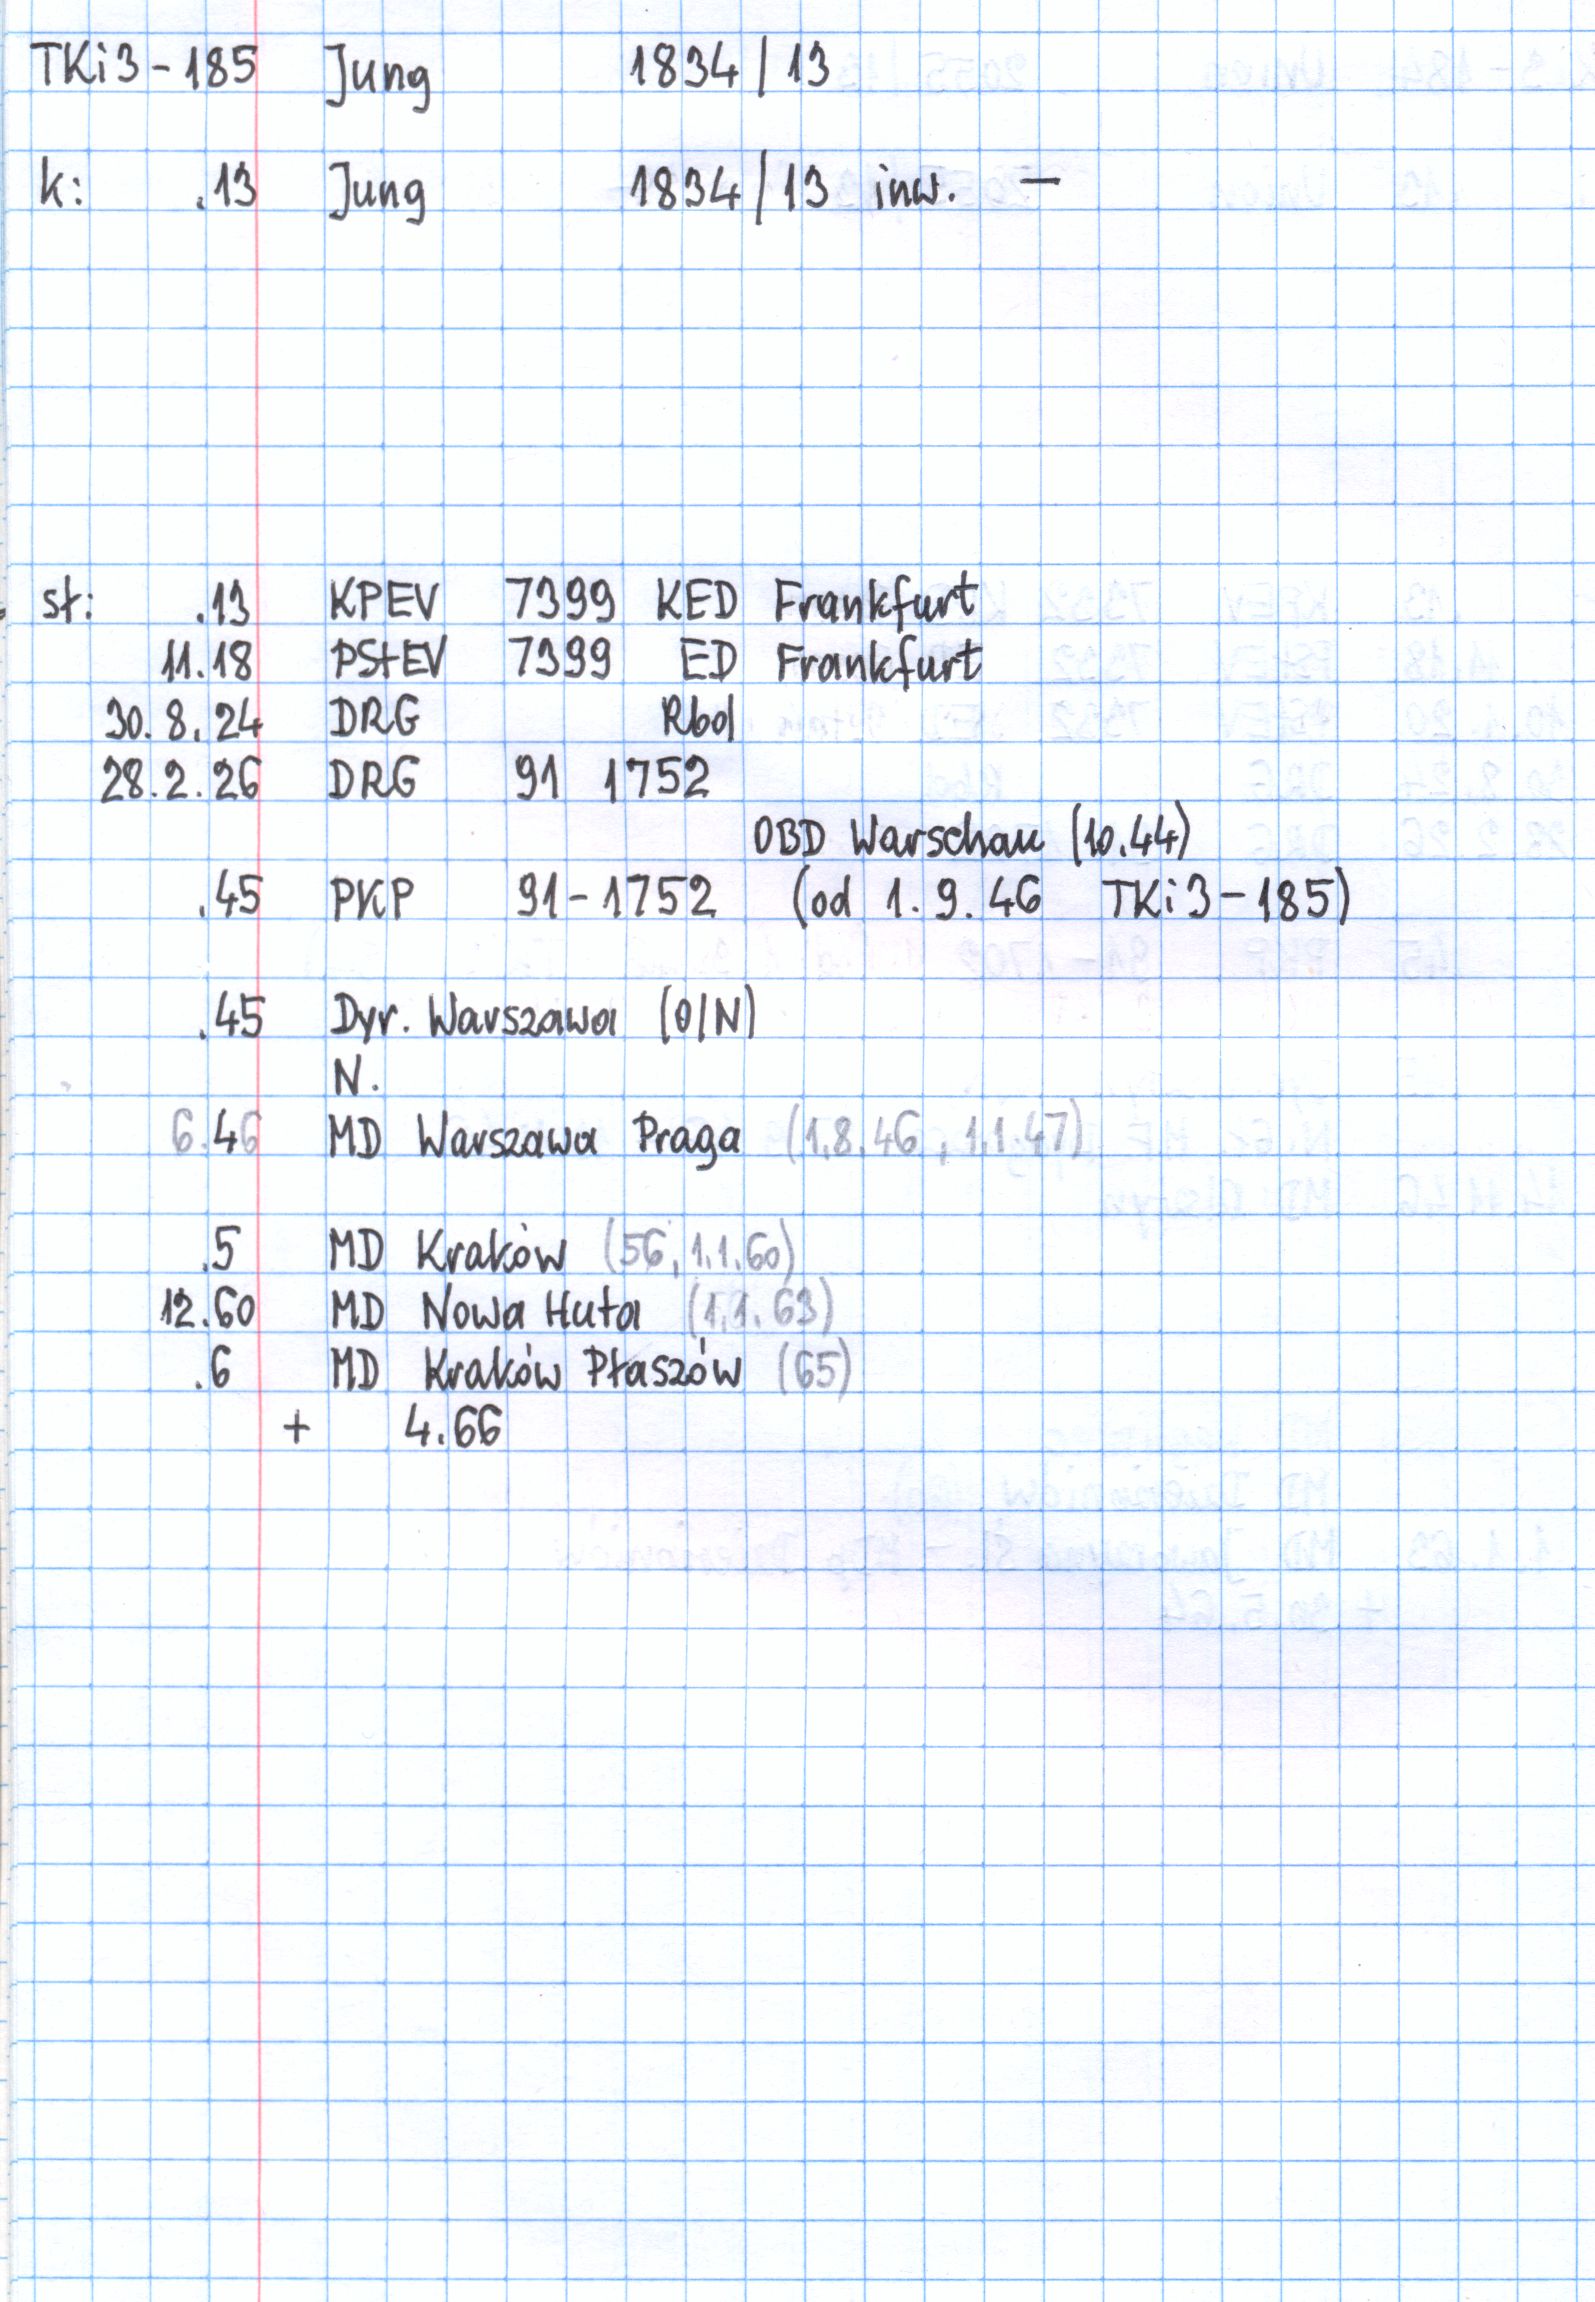 TKi3-185 Jung 1834/13
k: .13 Jung 1834/13 inw. —
st: .13 KPEV 7399 KED Frankfurt
11.18 PStEV 7399 ED Frankfurt
30.8.24 DRG Rbd
28.2.26 DRG 91 1752
OBD Warschau (10.44)
.45 PKP 91-1752 (od 1.9.46 TKi3-185)
.45 Dyr. Warszawa (O/N)
N.
6.46 MD Warszawa Praga (1.8.46, 1.1.47)
.5 MD Kraków (56, 1.1.60)
12.60 MD Nowa Huta (1.1.63)
.6 MD Kraków Płaszów (65)
+ 4.66